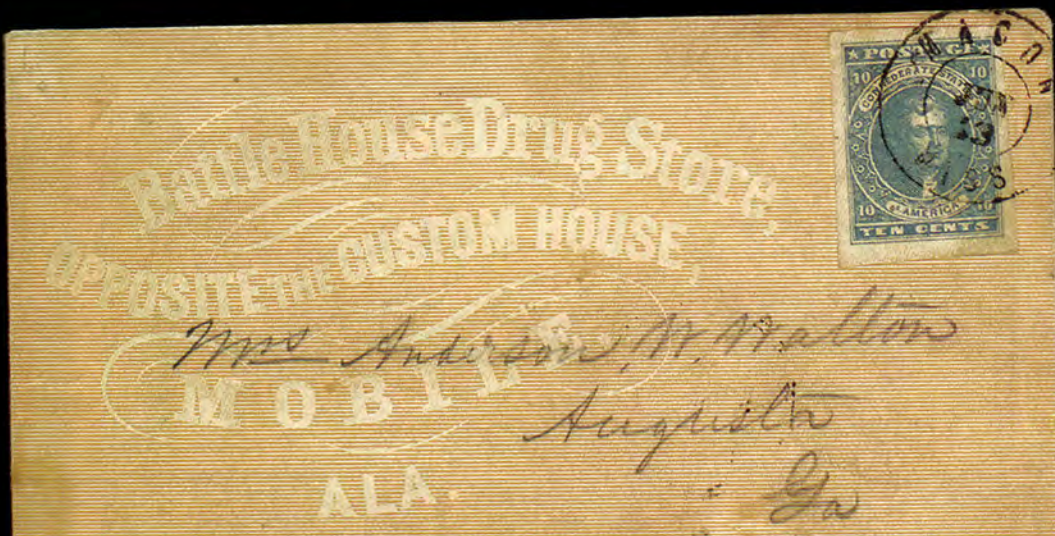 Battle House Drug Store,
OPPOSITE THE CUSTOM HOUSE,
MOBILE
ALA.
★ POSTAGE ★
10 10
CONFEDERATE STATES
OF AMERICA
10 10
TEN CENTS
MACON
23
Mrs Anderson W. Walton
Augusta
Ga